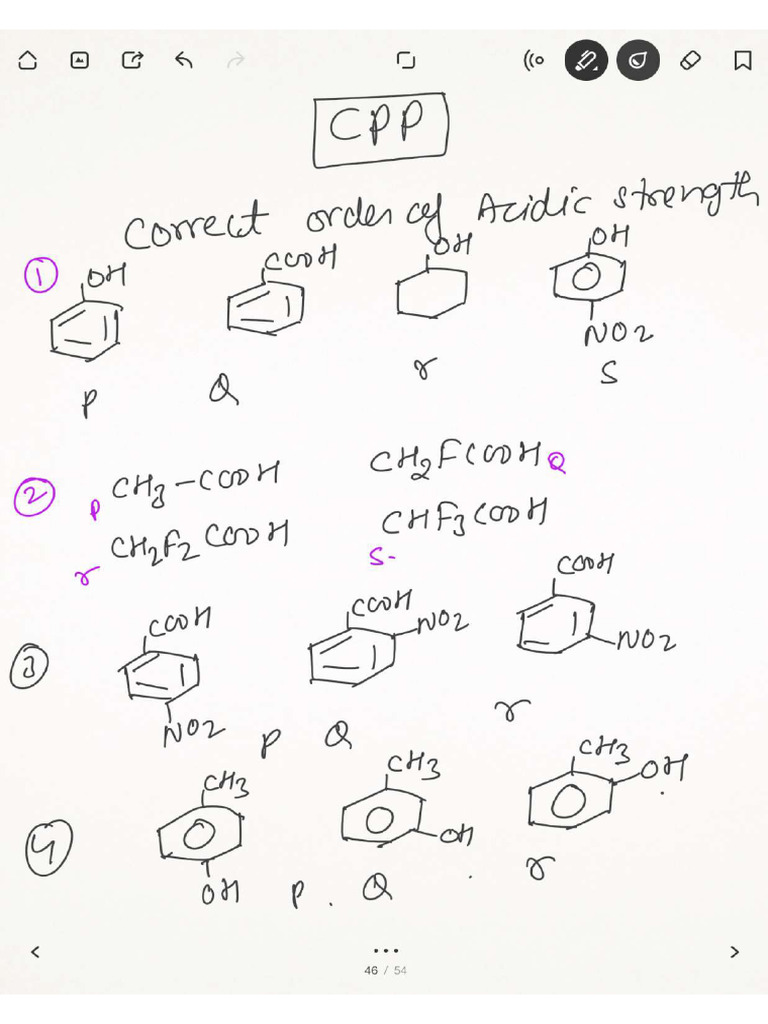 CPP
Correct order of Acidic strength
① OH COOH OH OH
NO2
P Q r S
② P CH3-COOH CH2FCOOH Q
r CH2F2COOH CHF3COOH
S-
③ COOH COOH NO2 COOH NO2
NO2 P Q r
④ CH3 CH3 OH CH3 OH
OH P. Q . r
46 / 54